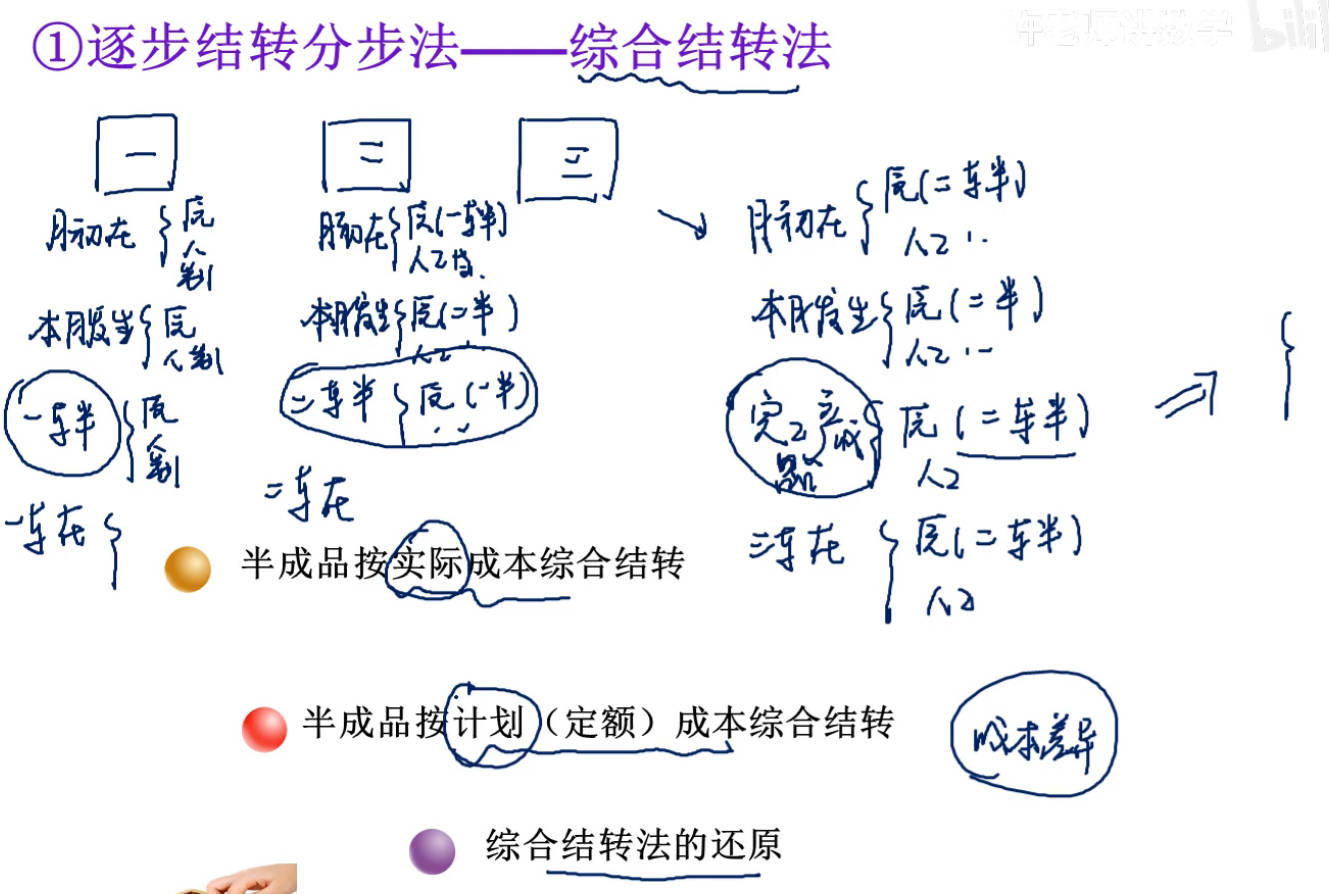 ①逐步结转分步法——综合结转法
bili
一
二
三
月初在
人
制
本月发生
人制
一车半
制
一车在
月初在
(一车半)
人工
本月发生
(二半)
人工
二车半
(一半)
二车在
月初在
(二车半)
人工
本月发生
(二半)
人工
完工产成品
(二车半)
人工
三车在
(二车半)
人工
半成品按实际成本综合结转
半成品按计划（定额）成本综合结转
成本差异
综合结转法的还原